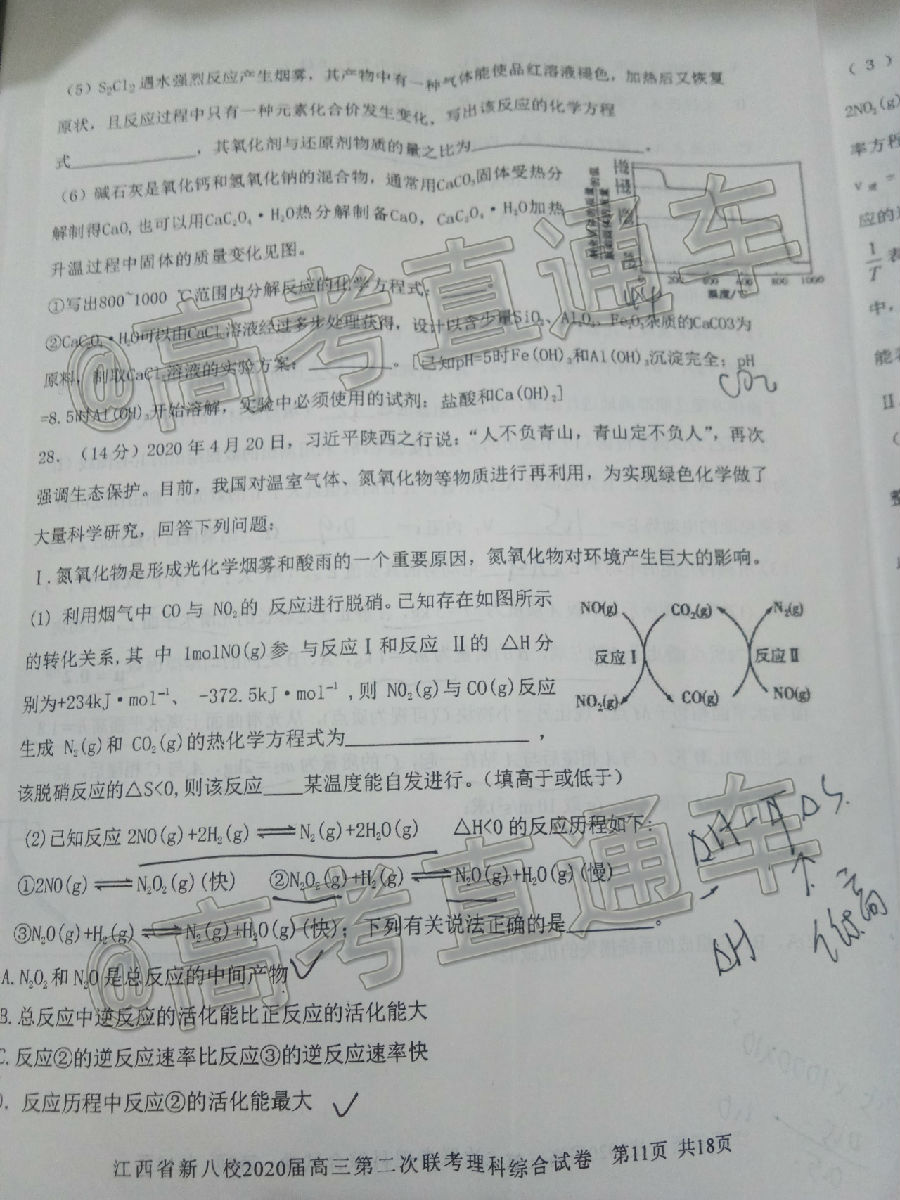 (5) S₂Cl₂ 遇水强烈反应产生烟雾，其产物中有一种气体能使品红溶液褪色，加热后又恢复
原状，且反应过程中只有一种元素化合价发生变化，写出该反应的化学方程
式____________，其氧化剂与还原剂物质的量之比为____________。
(6) 碱石灰是氧化钙和氢氧化钠的混合物，通常用CaCO₃固体受热分
解制得CaO，也可以用CaC₂O₄·H₂O热分解制备CaO，CaC₂O₄·H₂O加热
升温过程中固体的质量变化见图。
0 200 400 600 800 1000
温度/℃
①写出800~1000 ℃范围内分解反应的化学方程式：
②CaC₂O₄·H₂O可以由CaCl₂溶液经过多步处理获得，设计以含少量SiO₂、Al₂O₃、Fe₂O₃杂质的CaCO3为
原料，制取CaCl₂溶液的实验方案：________。[已知pH=5时Fe(OH)₃和Al(OH)₃沉淀完全；pH
=8.5时Al(OH)₃开始溶解，实验中必须使用的试剂：盐酸和Ca(OH)₂]
CO₂
28. (14分) 2020年4月20日，习近平陕西之行说：“人不负青山，青山定不负人”，再次
强调生态保护。目前，我国对温室气体、氮氧化物等物质进行再利用，为实现绿色化学做了
大量科学研究，回答下列问题：
I.氮氧化物是形成光化学烟雾和酸雨的一个重要原因，氮氧化物对环境产生巨大的影响。
(1) 利用烟气中 CO 与 NO₂的 反应进行脱硝。已知存在如图所示
的转化关系,其 中 1molNO(g)参 与反应Ⅰ和反应 Ⅱ的 △H分
别为+234kJ·mol⁻¹、 -372.5kJ·mol⁻¹ ,则 NO₂(g)与CO(g)反应
生成 N₂(g)和 CO₂(g)的热化学方程式为____________ ，
该脱硝反应的△S<0,则该反应____某温度能自发进行。（填高于或低于）
NO(g) CO₂(g) N₂(g)
反应Ⅰ 反应Ⅱ
NO₂(g) CO(g) NO(g)
(2)已知反应 2NO(g)+2H₂(g)⇌N₂(g)+2H₂O(g) △H<0 的反应历程如下：
①2NO(g)⇌N₂O₂(g)(快) ②N₂O₂(g)+H₂(g)⇌N₂O(g)+H₂O(g)(慢)
③N₂O(g)+H₂(g)⇌N₂(g)+H₂O(g)(快)；下列有关说法正确的是________。
A.N₂O₂和N₂O是总反应的中间产物 ✓
B.总反应中逆反应的活化能比正反应的活化能大
C.反应②的逆反应速率比反应③的逆反应速率快
反应历程中反应②的活化能最大 ✓
ΔH-TΔS
ΔH
低 高
江西省新八校2020届高三第二次联考理科综合试卷 第11页 共18页
(3)
2NO₂(g)
率方程
应的
1
T
表
中，
Ⅱ
@高考直通车
@高考直通车